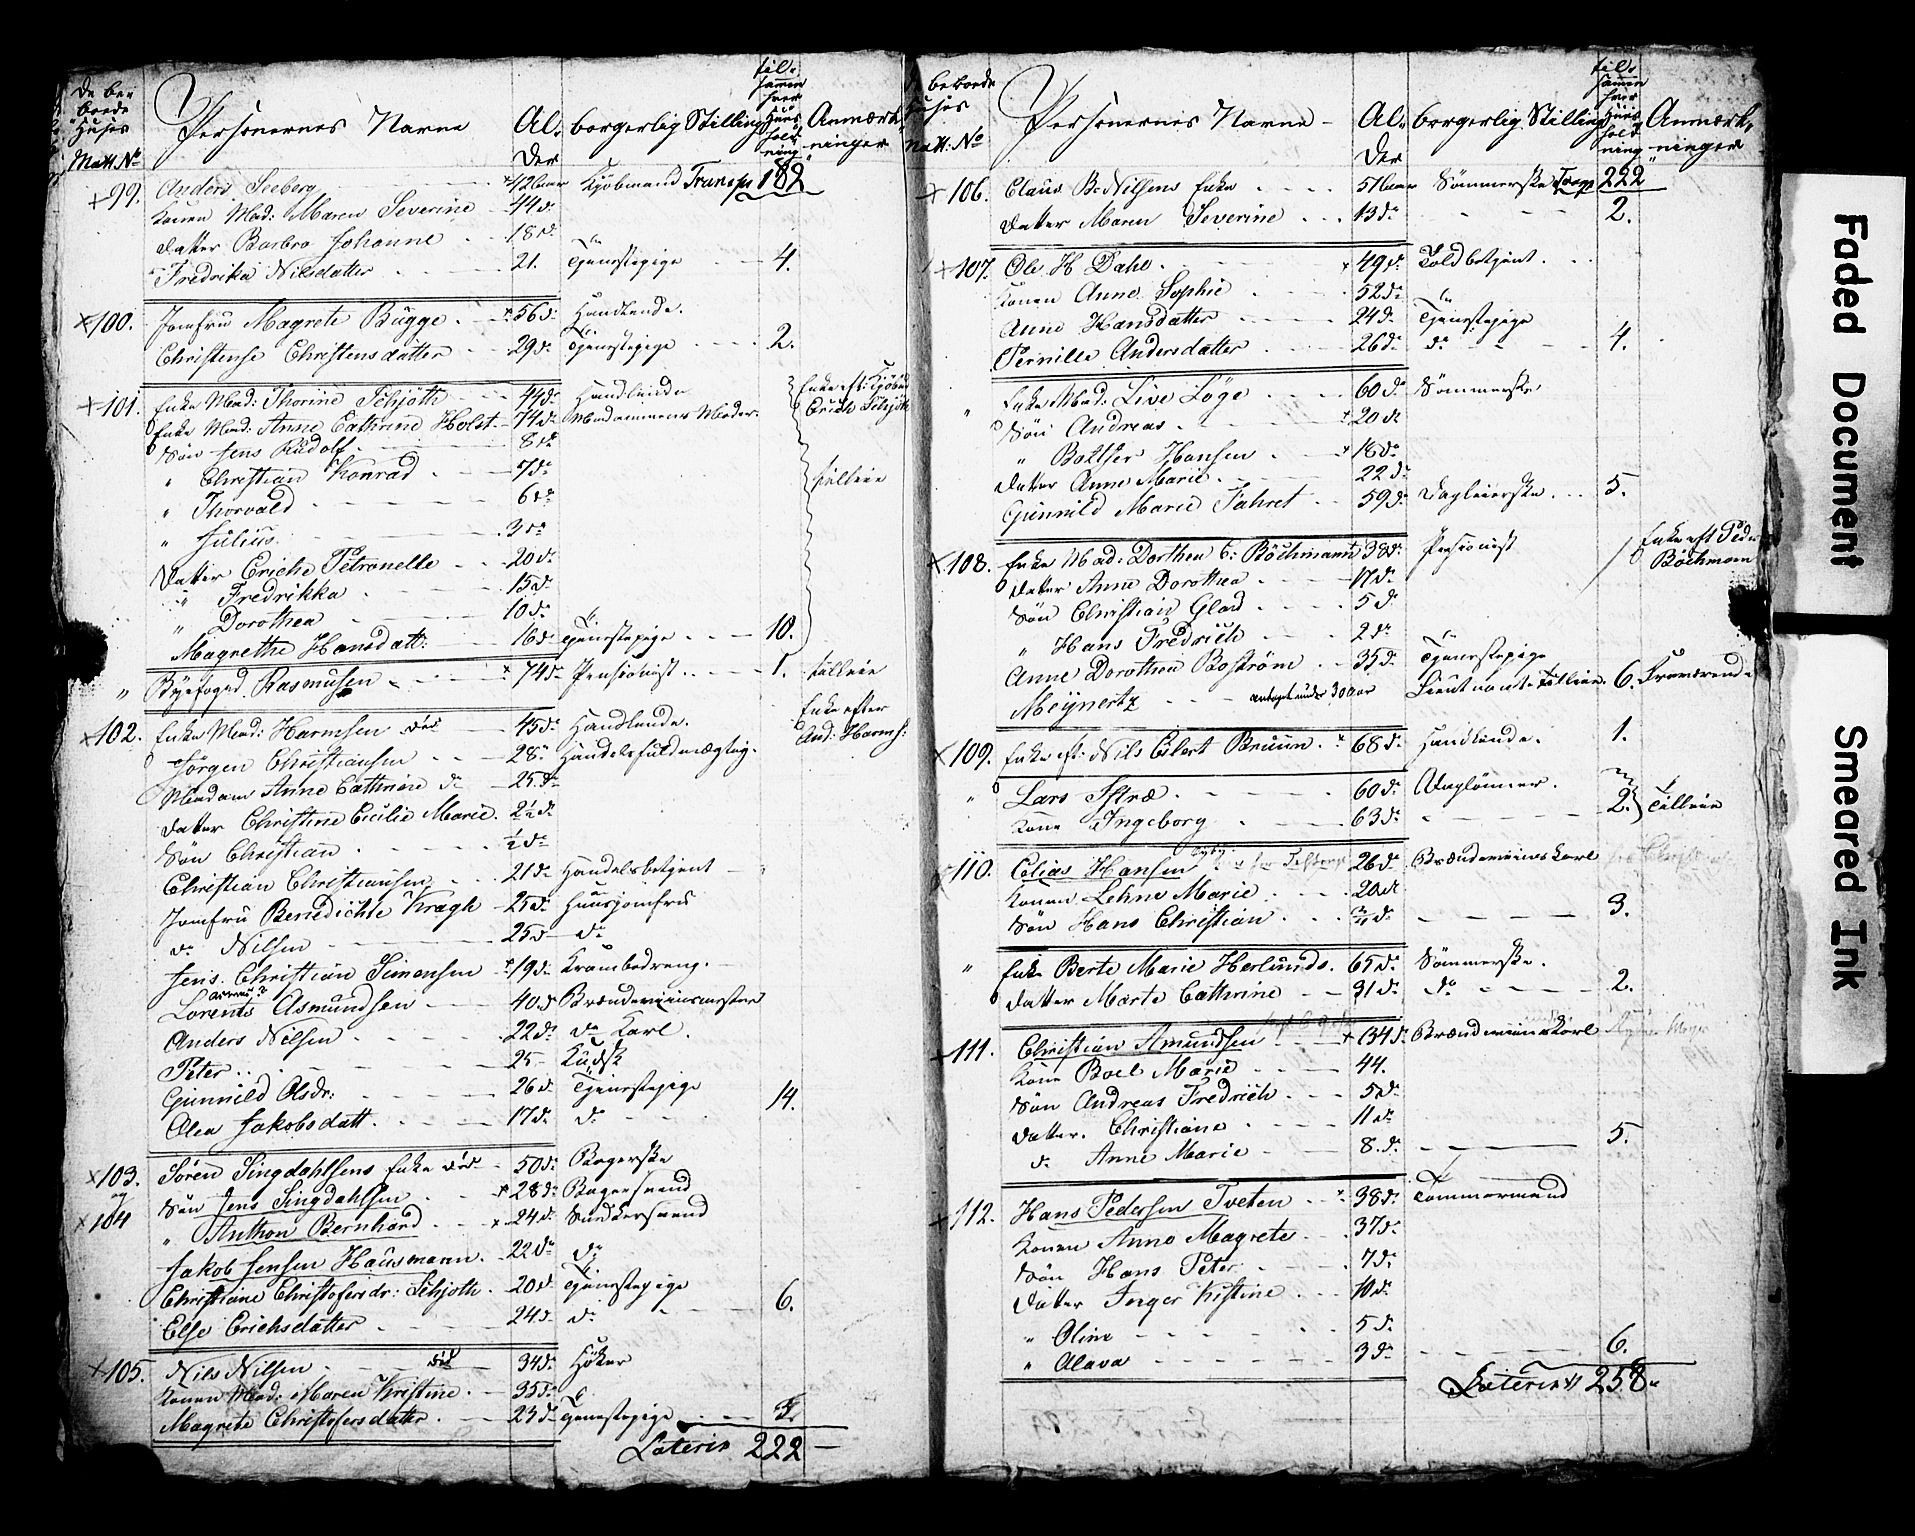 De be-
boede
Huses
Matt. No
Personernes Navne
Al-
der
borgerlig Stilling
til-
sammen
hver
Huus
hold-
ning
Anmærk-
ninger
99. Anders Seeberg 42 aar Kjöbmand Transp 182
Konen Mad: Maren Severine 44 do
Datter Barbro Johanne 18 do
Fredrika Nilsdatter 21. Tjenestepige 4.
100. Jomfru Magrete Bügge 56 do Handlende.
Christense Christensdatter 29 do Tjenestepige 2.
101. Enke Mad: Thorine Schjöth 44 do Handlende Enke eft: Kjöbm
Enke Mad: Anne Cathrine Holst 74 do Madammens Moder. Erich Schjöth
Sön Jens Rudolf 8 do
" Christian Konrad 7 do tilleie
" Thorvald 6 do
" Julius 3 do
Datter Eriche Petronelle 20 do
" Fredrikka 15 do
" Dorothea 10 do
Magrethe Hansdatt: 16 do Tjenestepige 10.
" Byefoged Rasmusen 74 do Pensionist 1. tilleie
102. Enke Mad: Harmsen död 45 do Handlende. Enke efter
Jörgen Christiansen 28 " Handelsfuldmægtig. And: Harms:
Madam Anne Cathrine do 25 do
Datter Christine Cicilie Marie. 2½ do
Sön Christian ½ do
Christian Christiansen 21 do Handelsbetjent
Jomfru Benedichte Kragh 25 do Huusjomfru
do Nilsen 25 do do
Jens Christian Simensen 19 do Krambodreng.
Lorents Asmundsen 40 do Brændeviinsmester
Anders Nilsen 22 do do Karl.
Peter 25 Kudsk
Gunnild Olsdr: 26 do Tjenestepige
Alea Jakobsdatt. 17 do do 14.
103. Sören Singdahlsens Enke död 50 do Bagerske
og Sön Jens Singdahlsen 28 do Bagersvend
104 " Anthon Bernhard 24 do Snedkersvend
Jakob Jensen Hausmann. 22 do do
Christiane Christofersdr: Schjoth. 20 do Tjenestepige
Else Erichsdatter 24 do do 6.
105. Nils Nilsen död 34 do Höker
Konen Mad: Maren Kristine. 35 do
Magrete Christofersdatter. 23 do Tjenestepige 3.
Lateris 222
beboede
Huses
Matt: No
Personernes Navne
Al-
der
borgerlig Stilling
til-
sammen
hver
Huus
hold-
ning
Anmærk-
ninger
106. Claus B: Nilsens Enke 51 aar Sömmerske Transp 222
Datter Maren Severine 13 do 2.
107. Ole H Dahl 49 do Toldbetjent.
Konen Anne Sophie 52 do
Anne Hansdatter 24 do Tjenestepige
Pernille Andersdatter 26 do do 4.
" Enke Mad: Live Löge 60 do Sömmerske
Sön Andreas 20 do
" Boltser Hansen 18 do
Datter Anne Marie 22 do
Gunnild Marie Fahret 59 do Dagleierske 5.
108. Enke Mad: Dorthea C: Böchmann 38 do Pensionist Enke eft Peder
Datter Anne Dorothea 17 do Böchmann
Sön Christian Glad 5 do
" Hans Fredrich 2 do
Anne Dorothea Boström 35 do Tjenestepige
Meijnertz antaget under 30 aar Lieutnant tilleie. 6. Fraværende
109. Enke eft: Nils Eilert Bruun. 68 do Handlende. 1.
" Lars Istræ 60 do Daglönner.
Kone Ingeborg 63 do 2. Tilleie
110. Elias Hansen 26 do Brændeviinskarl
Konen Lehne Marie 20 do
Sön Hans Christian do 3.
" Enke Berte Marie Herlunds. 65 do Sömmerske.
Datter Marte Cathrine 31 do do 2.
111. Christian Amundsen 34 do Brændeviinskarl
Kone Boel Marie 44.
Sön Andreas Fredrich 5 do
Datter. Christiane 11 do
do Anne Marie 8. do 5.
112. Hans Pedersen Tveten 38 do Tömmermand
Konen Anne Magrete 37 do
Sön Hans Peter 7 do
Datter Inger Kistine 10 do
" Oline 5 do
" Alava 3 do 6.
Lateris 258
Faded Document
Smeared Ink